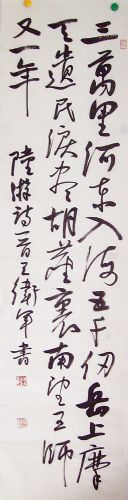 三萬里河東入海五千仞岳上摩
天遺民淚盡胡塵裏南望王師
又一年
陸游詩一首王衛軍書